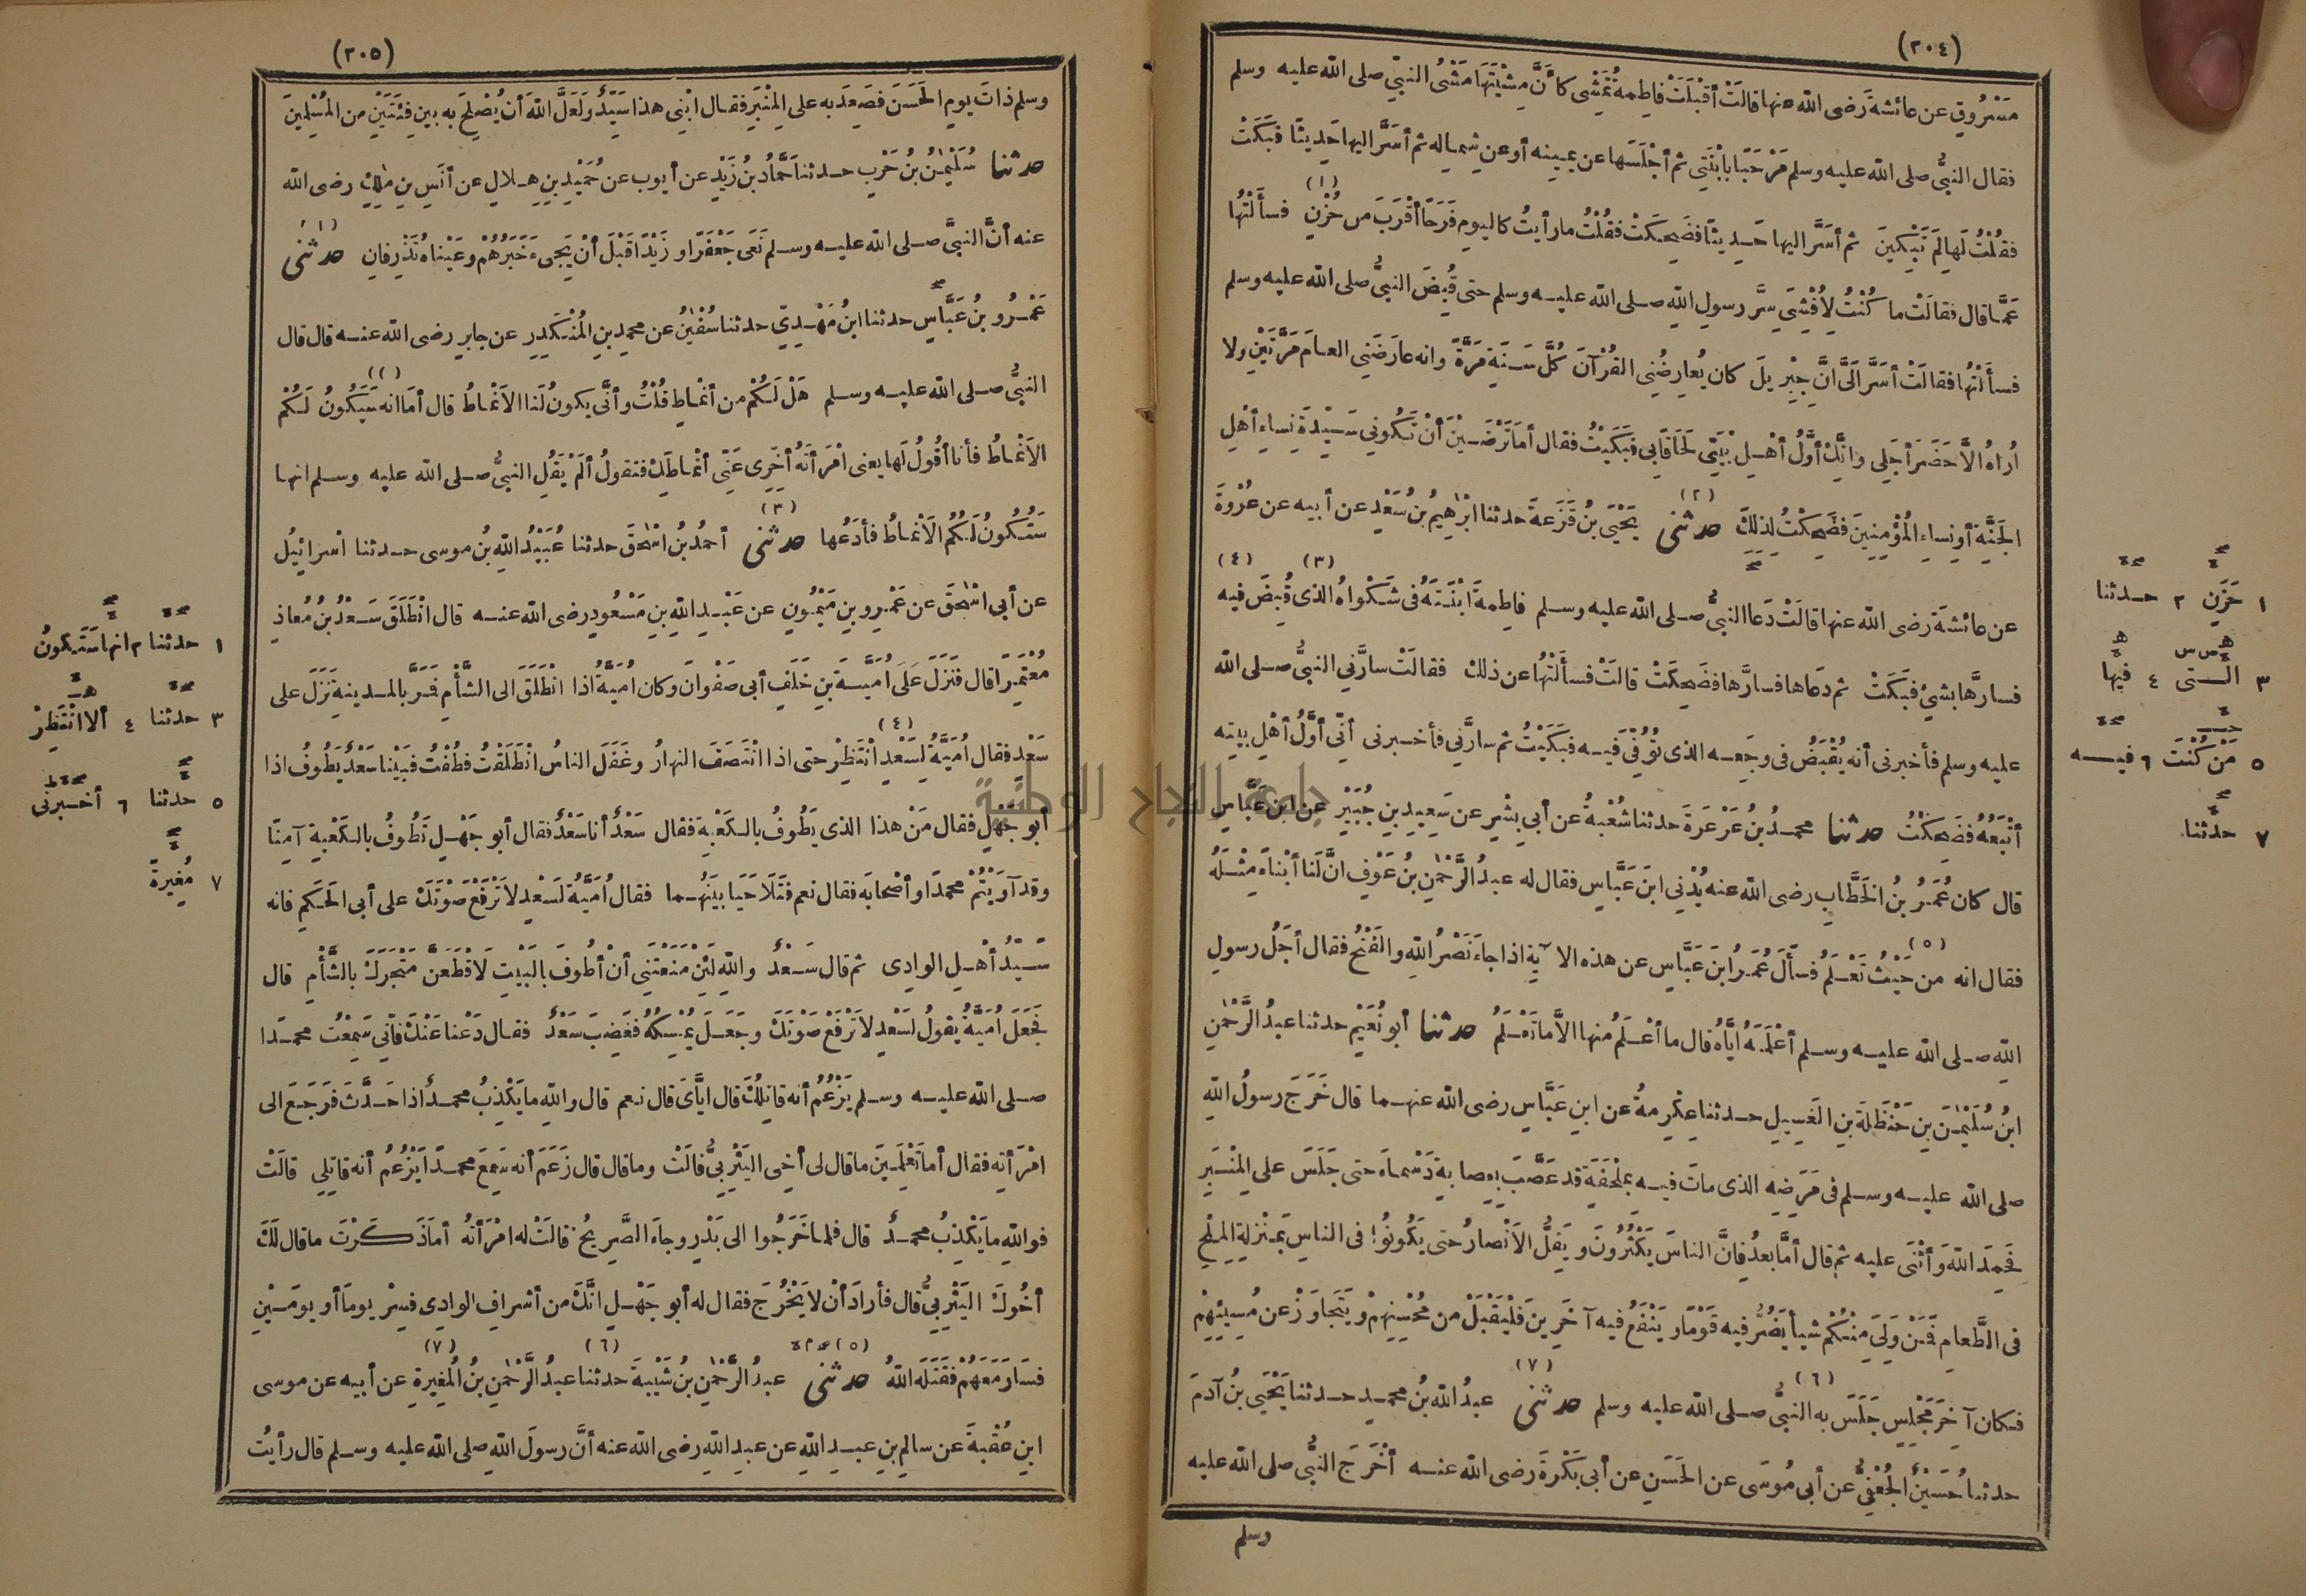 (٢٠٤)
مَسْرُوقٍ عن عائشةَ رضى الله عنها قالَتْ أقْبَلَتْ فاطِمةُ تَمْشِى كأنَّ مِشْيَتَها مَشْىُ النبيِّ صلى الله عليه وسلم
فقال النبيُّ صلى الله عليه وسلم مَرْحَبًا بابْنَتِى ثم أجْلَسَها عن يمينه أو عن شماله ثم أسَرَّ اليها حَديثًا فبَكَتْ
فقُلْتُ لَها لِمَ تَبْكِينَ ثم أسَرَّ اليها حَديثًا فضَحِكَتْ فقُلْتُ مارأيتُ كاليومِ فَرَحًا أقْرَبَ من حُزْنٍ (١) فسألْتُها
عَمَّا قال فقالَتْ ما كُنْتُ لِأُفْشِىَ سِرَّ رسولِ الله صلى الله عليه وسلم حتى قُبِضَ النبيُّ صلى الله عليه وسلم
فسألْتُها فقالَتْ أسَرَّ الَىَّ انَّ جِبْرِيلَ كان يُعارِضُنِى القُرْآنَ كُلَّ سَنَةٍ مَرَّةً وانه عارَضَنِى العامَ مَرَّتَيْنِ ولا
أُراهُ الَّا حَضَرَ أجَلِى وانَّكِ أوَّلُ أهْلِ بَيْتِى لَحَاقًا بى فبَكَيْتُ فقال أمَا تَرْضَيْنَ أنْ تَكُونِى سَيِّدَةَ نِساءِ أهْلِ
الجَنَّةِ أو نِساءِ المُؤْمِنِينَ فضَحِكْتُ لذلِكَ حدثنى (٢) يَحْيَى بنُ قَزَعةَ حدثنا ابْرٰهِيمُ بنُ سَعْدٍ عن أبيه عن عُرْوةَ
عن عائشةَ رضى الله عنها قالَتْ دَعا النبيُّ صلى الله عليه وسلم فاطِمةَ ابْنَتَهُ فى شَكْواهُ الذى (٣) قُبِضَ فيه (٤)
فسارَّها بشىْءٍ فبَكَتْ ثم دعاها فسارَّها فضَحِكَتْ قالَتْ فسألْتُها عن ذلكَ فقالَتْ سارَّنِى النبيُّ صلى الله
عليه وسلم فأخبرنى أنه يُقْبَضُ فى وَجَعِه الذى تُوُفِّىَ فيه فبَكَيْتُ ثم سارَّنِى فأخبرنى أنّى أوَّلُ أهْلِ بيته
أتْبَعُهُ فضَحِكْتُ حدثنا محمدُ بنُ عَرْعَرةَ حدثنا شُعْبةُ عن أبى بِشْرٍ عن سَعِيدِ بنِ جُبَيْرٍ عن ابنِ عَبَّاسٍ
قال كان عُمَرُ بنُ الخَطَّابِ رضى الله عنه يُدْنِى ابنَ عَبَّاسٍ فقال له عبدُ الرَّحْمٰنِ بنُ عَوْفٍ انَّ لَنا أبْناءً مِثْلَهُ
فقال انه من حَيْثُ (٥) تَعْلَمُ فسألَ عُمَرُ ابنَ عَبَّاسٍ عن هذه الآيةِ اذا جاءَ نَصْرُ اللهِ والفَتْحُ فقال أجَلُ رسولِ
اللهِ صلى الله عليه وسلم أعْلَمَهُ ايَّاهُ قال ما أعْلَمُ منها الَّا ما تَعْلَمُ حدثنا أبو نُعَيْمٍ حدثنا عبدُ الرَّحْمٰنِ
ابنُ سُلَيْمٰنَ بنِ حَنْظَلةَ بنِ الغَسِيلِ حدثنا عِكْرِمةُ عن ابنِ عَبَّاسٍ رضى الله عنهما قال خَرَجَ رسولُ اللهِ
صلى الله عليه وسلم فى مَرَضِه الذى ماتَ فيه بمِلْحَفَةٍ قد عَصَّبَ بعِصابةٍ دَسْماءَ حتى جَلَسَ على المِنْبَرِ
فحَمِدَ اللهَ وأثْنَى عليه ثم قال أمَّا بعدُ فانَّ الناسَ يَكْثُرُونَ ويَقِلُّ الاَنْصارُ حتى يَكُونُوا فى الناسِ بمَنْزِلةِ المِلْحِ
فى الطَّعامِ فَمَنْ وَلِىَ مِنْكُمْ شيأ يَضُرُّ فيه قَوْمًا ويَنْفَعُ فيه آخَرِينَ فلْيَقْبَلْ من مُحْسِنِهِمْ ويَتَجَاوَزْ عن مُسِيئِهِمْ
فكان آخِرَ مَجْلِسٍ جَلَسَ به (٦) النبيُّ صلى الله عليه وسلم حدثنى (٧) عبدُ الله بنُ محمدٍ حدثنا يَحْيَى بنُ آدمَ
حدثنا حُسَيْنٌ الجُعْفِىُّ عن أبى مُوسَى عن الحَسَنِ عن أبى بَكْرةَ رضى الله عنه أخْرَجَ النبيُّ صلى الله عليه
وسلم
١ حَزَنٍ ٢ حدثنا
٣ التى ٤ فيها
٥ مَنْ كُنْتَ ٦ فيه
٧ حدثنا
(٢٠٥)
وسلم ذاتَ يومٍ الحَسَنَ فصَعِدَ به على المِنْبَرِ فقال ابْنِى هذا سَيِّدٌ ولَعَلَّ اللهَ أن يُصْلِحَ به بين فِئَتَيْنِ من المُسْلِمِينَ
حدثنا سُلَيْمٰنُ بنُ حَرْبٍ حدثنا حَمَّادُ بنُ زَيْدٍ عن أيوب عن حُمَيْدِ بنِ هِلالٍ عن أنَسِ بنِ مٰلِكٍ رضى الله
عنه أنَّ النبيَّ صلى الله عليه وسلم نَعَى جَعْفَرًا وزَيْدًا قَبْلَ أنْ يَجِىءَ خَبَرُهُمْ وعَيْناهُ تَذْرِفانِ حدثنى (١)
عَمْرُو بنُ عَبَّاسٍ حدثنا ابنُ مَهْدِىٍّ حدثنا سُفْيٰنُ عن محمدِ بنِ المُنْكَدِرِ عن جابرٍ رضى الله عنه قال قال
النبيُّ صلى الله عليه وسلم هَلْ لَكُمْ من أنْماطٍ قُلْتُ وأنَّى يكونُ لَنا الاَنْماطُ قال أمَا انه سَيَكُونُ لَكُمْ
الاَنْماطُ فأنا أقُولُ لَها يعنى امْرَأتَهُ أخِّرِى عَنِّى أنْماطَكِ فتقولُ ألَمْ يَقُلِ النبيُّ صلى الله عليه وسلم انها
سَتَكُونُ لَكُمُ الاَنْماطُ فأدَعُها حدثنى (٣) أحمدُ بنُ اسْحٰقَ حدثنا عُبَيْدُ اللهِ بنُ موسى حدثنا اسْرائِيلُ
عن أبى اسْحٰقَ عن عَمْرِو بنِ مَيْمُونٍ عن عَبْدِ اللهِ بنِ مَسْعُودٍ رضى الله عنه قال انْطَلَقَ سَعْدُ بنُ مُعاذٍ
مُعْتَمِرًا قال فنَزَلَ عَلَى أُمَيَّةَ بنِ خَلَفٍ أبى صَفْوانَ وكان أُمَيَّةُ اذا انْطَلَقَ الى الشَّأْمِ فمَرَّ بالمدينةِ نَزَلَ على
سَعْدٍ فقال أُمَيَّةُ لِسَعْدٍ (٤) انْتَظِرْ حتى اذا انْتَصَفَ النهارُ وغَفَلَ الناسُ انْطَلَقْتُ فطُفْتُ فبَيْنا سَعْدٌ يَطُوفُ اذا
أبو جَهْلٍ فقال مَنْ هذا الذى يَطُوفُ بالكَعْبةِ فقال سَعْدٌ أنا سَعْدٌ فقال أبو جَهْلٍ تَطُوفُ بالكَعْبةِ آمِنًا
وقد آوَيْتُمْ محمدًا وأصْحابَه فقال نعم فتَلَاحَيَا بينَهُما فقال أُمَيَّةُ لسَعْدٍ لا تَرْفَعْ صَوْتَكَ على أبى الحَكَمِ فانه
سَيِّدُ أهْلِ الوادى ثم قال سَعْدٌ واللهِ لَئِنْ مَنَعْتَنِى أنْ أطُوفَ بالبَيْتِ لَاَقْطَعَنَّ مَتْجَرَكَ بالشَّأْمِ قال
فجَعَلَ أُمَيَّةُ يقولُ لسَعْدٍ لا تَرْفَعْ صَوْتَكَ وجَعَلَ يُمْسِكُهُ فغَضِبَ سَعْدٌ فقال دَعْنا عَنْكَ فانّى سَمِعْتُ محمدًا
صلى الله عليه وسلم يَزْعُمُ أنه قاتِلُكَ قال ايَّاىَ قال نعم قال واللهِ ما يَكْذِبُ محمدٌ اذا حَدَّثَ فرَجَعَ الى
امْرَأتِه فقال أما تَعْلَمِينَ ما قال لى أخِى اليَثْرِبِىُّ قالَتْ وما قال قال زَعَمَ أنه سَمِعَ محمدًا يَزْعُمُ أنه قاتِلِى قالَتْ
فواللهِ ما يَكْذِبُ محمدٌ قال فلما خَرَجُوا الى بَدْرٍ وجاءَ الصَّرِيخُ قالَتْ له امْرَأتُهُ أماذَكَرْتَ ما قال لَكَ
أخُوكَ اليَثْرِبِىُّ قال فأرادَ أنْ لا يَخْرُجَ فقال له أبو جَهْلٍ انَّكَ من أشرافِ الوادِى فسِرْ يومًا أو يومَيْنِ
فسَارَ مَعَهُمْ فقَتَلَه اللهُ حدثنى (٥) عبدُ الرَّحْمٰنِ بنُ شَيْبةَ حدثنا (٦) عبدُ الرَّحْمٰنِ بنُ المُغِيرةِ (٧) عن أبيه عن موسى
ابنِ عُقْبةَ عن سالمِ بنِ عبدِ اللهِ عن عبدِ اللهِ رضى الله عنه أنَّ رسولَ اللهِ صلى الله عليه وسلم قال رأيتُ
١ حدثنا ٢ انها سَتَكونُ
٣ حدثنا ٤ ألا انْتَظِرْ
٥ حدثنا ٦ أخبرنى
٧ مُغِيرةَ
جامعة النجاح الوطنية